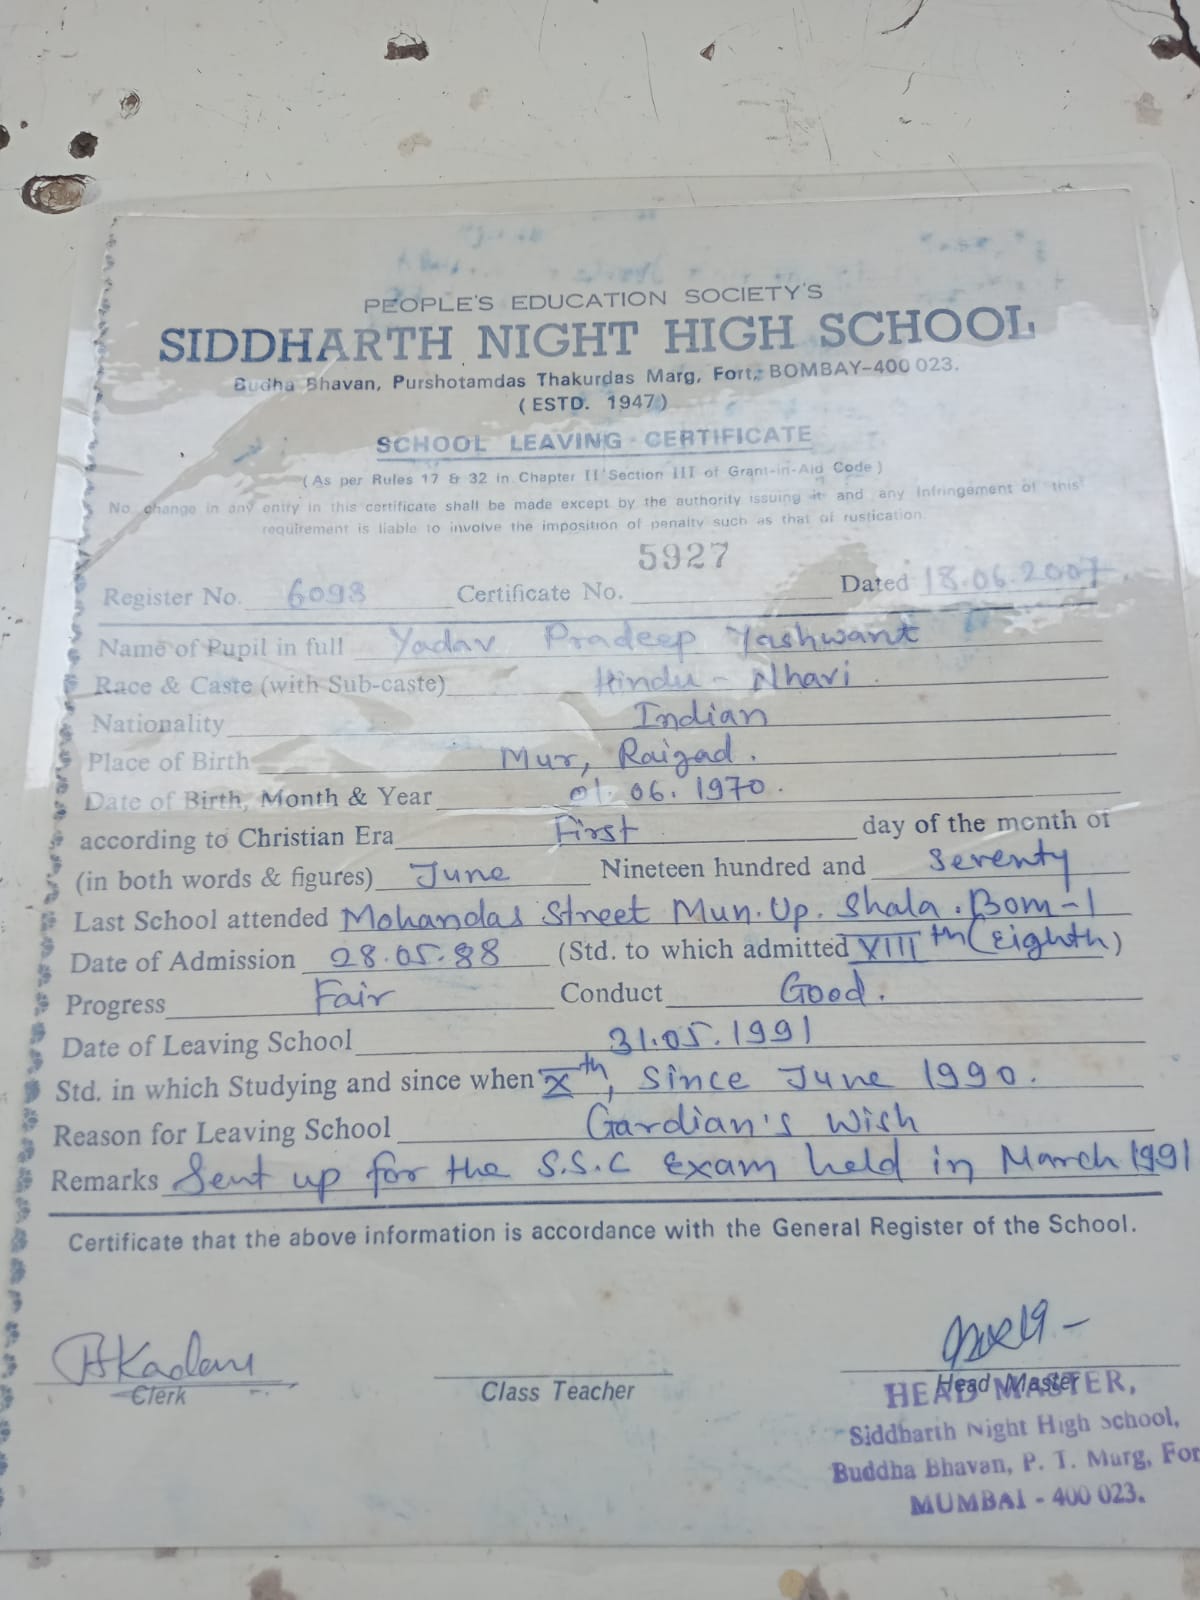 PEOPLE'S EDUCATION SOCIETY'S
SIDDHARTH NIGHT HIGH SCHOOL
Budha Bhavan, Purshotamdas Thakurdas Marg, Fort, BOMBAY-400 023.
( ESTD. 1947 )
SCHOOL LEAVING CERTIFICATE
( As per Rules 17 & 32 in Chapter II Section III of Grant-in-Aid Code )
No change in any entry in this certificate shall be made except by the authority issuing it and any Infringement of this
requirement is liable to involve the imposition of penalty such as that of rustication.
5927
Register No. 6098 Certificate No. Dated 18.06.2007
Name of Pupil in full Yadav Pradeep Yashwant
Race & Caste (with Sub-caste) Hindu - Nhavi .
Nationality Indian
Place of Birth Mur, Raigad .
Date of Birth, Month & Year 01. 06. 1970 .
according to Christian Era First day of the month of
(in both words & figures) June Nineteen hundred and Seventy
Last School attended Mohandas Street Mun. Up. Shala . Bom-1
Date of Admission 28.05.88 (Std. to which admitted VIIIth (Eighth)
Progress Fair Conduct Good .
Date of Leaving School 31.05.1991
Std. in which Studying and since when Xth, Since June 1990.
Reason for Leaving School Gardian's Wish
Remarks Sent up for the S.S.C Exam held in March 1991
Certificate that the above information is accordance with the General Register of the School.
Clerk Class Teacher Head Master
HEAD MASTER,
Siddharth Night High School,
Buddha Bhavan, P. T. Marg, For
MUMBAI - 400 023.